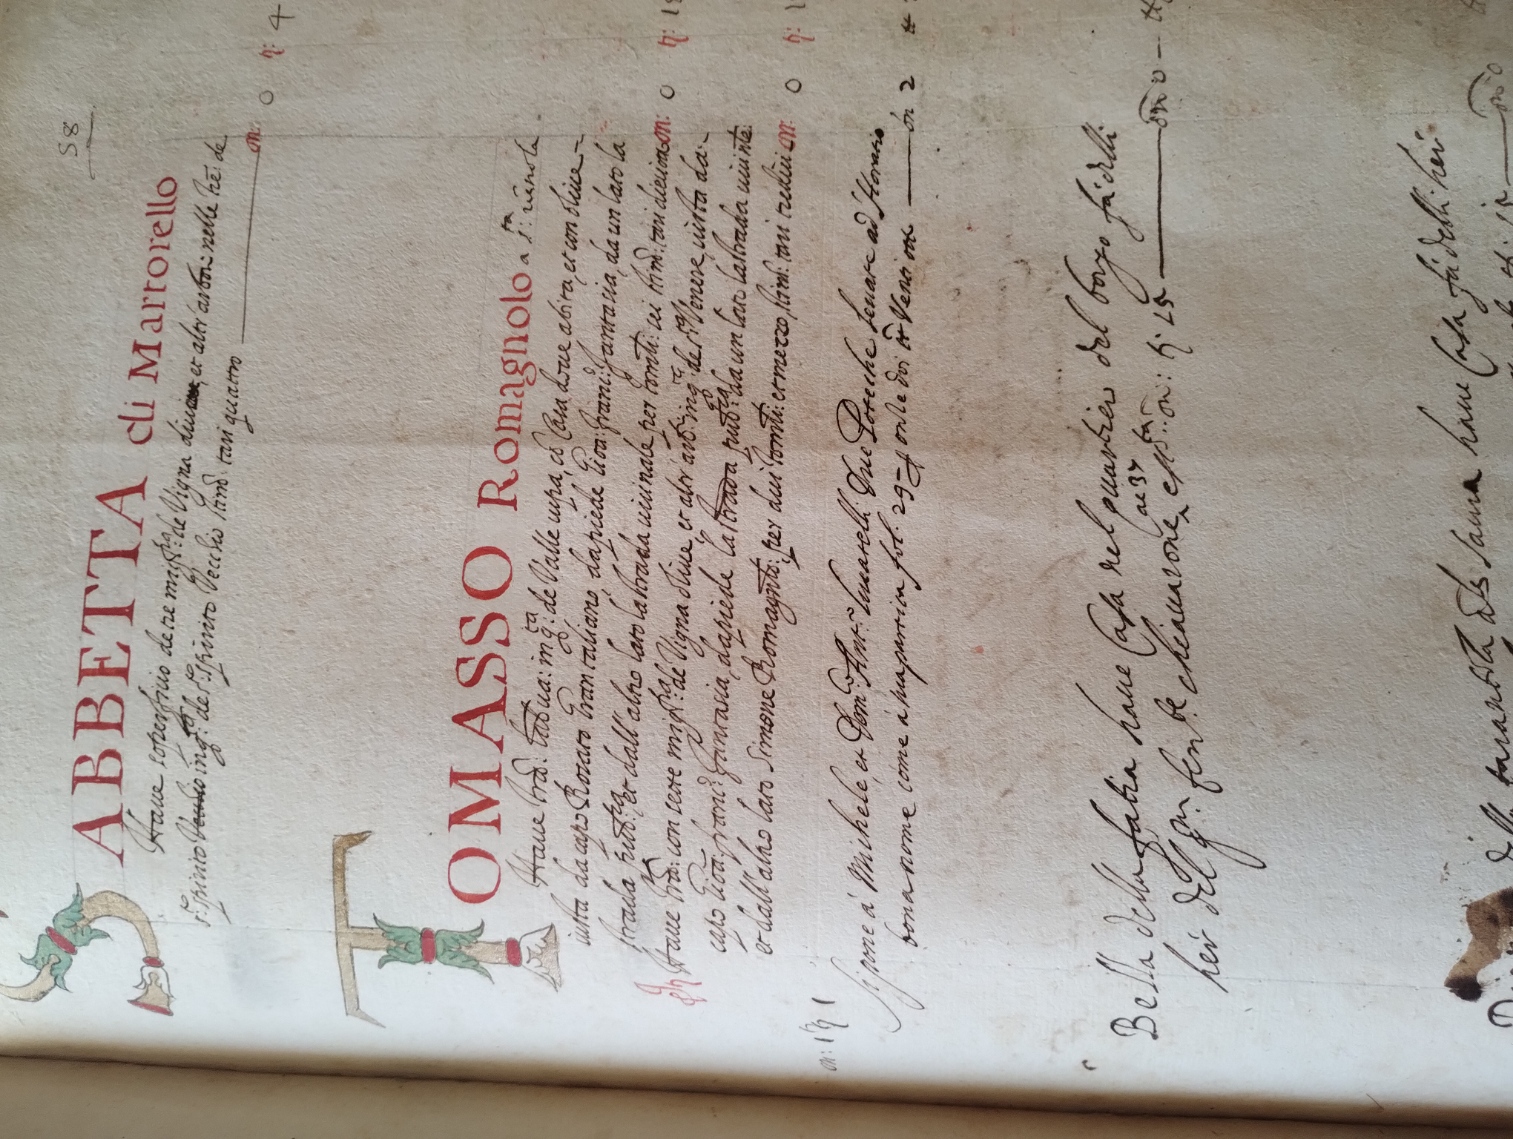 58
SABBETTA di Martorello
Haue soperficio de tre migl.ra de Vigna et altr'arbori nelle tr̃e: de
s.to spirito Vecchio in q.ta de s.to spirito Vecchio stim.o tari quattro on: 0 tt: 4
TOMASSO Romagnolo a s.ta
Haue tr̃a: in q.ta: de Valle cupa, cõ Casa doue abita, et con oliue
iusta da capo Rosato Grantaliano, da piede Gioa: fran.co: fantasia, da un lato la
strada pub.ca, et dall'altro lato la strada uicinale per tomli: sei stim.o: tari dieci on: 0 tt: 1
Haue tr̃a: con sette migl.ra de Vigna oliue, et altr'arb: in q.ta de s.ta Venere, iusta da
capo Gioa: fran.co: fantasia, da piede la strada pub.ca da un lato la strada uicinle:
et dall'altro lato Simone Romagnlo: per dui tomli: et mezzo, stim.o: tari tredici on: 0 tt: 1
on: 1 tt 1
Si pone à Michele, et Dom.co Ant.o Lucatelli Due Poteche leuate ad Horatio
bonanome come à sua partita fol. 29 onze doi tt Venti otto on 2 tt
Bella della fatia haue Casa nel quartier del borgo fù delli
ac 37
her' del q.m chiauarone, est.ta on: tt 15 on 0 tt
della tarantola als saura haue Casa fù delli her'
tt: 15 on 0